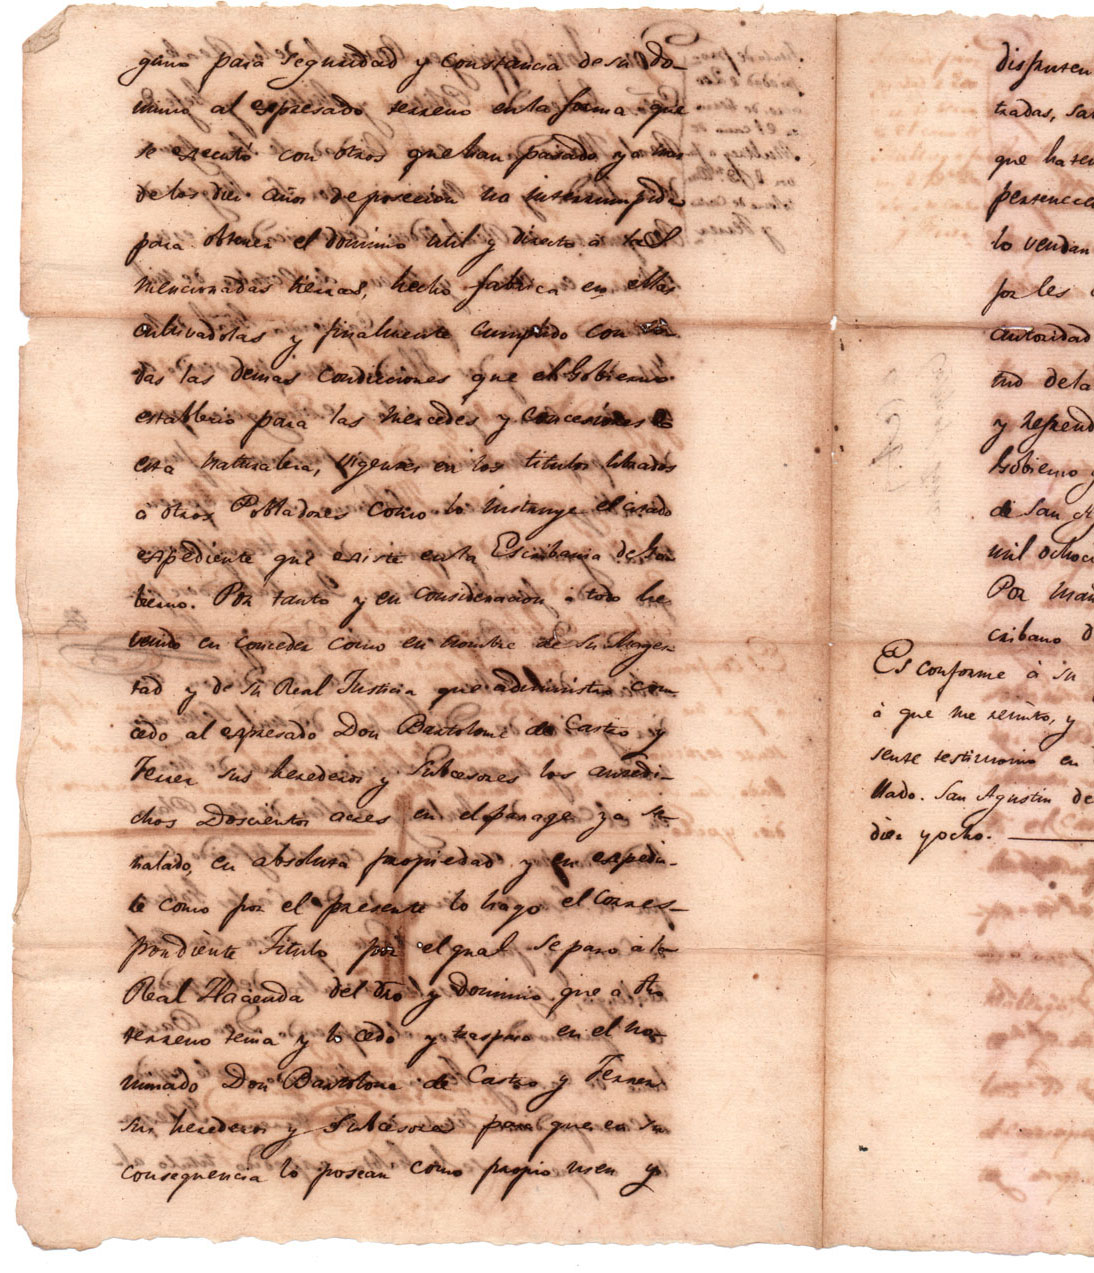 guno para seguridad y constancia de su do-
minio al expresado terreno en la forma que
se executó con otros que han pasado y mas
de los diez años de posecion no interrumpida
para obtener el dominio util y directo á tal
mencionadas tierras, hecho fabrica en ellas
cultivadolas y finalmente cumplido con to-
das las demas condiciones que el Gobierno
establecio para las mercedes y concesiones de
esta naturaleza, vigentes en los titulos librados
á otros Pobladores como lo instruye el citado
expediente que existe en la Escribania de Go-
bierno. Por tanto y en consideracion á todo he
venido en conceder como en nombre de su Mages-
tad y de su Real Justicia que administro con-
cedo al expresado Don Bartolome de Castro y
Ferrer sus herederos y subcesores los anredi-
chos Doscientos acres en el parage ya se-
ñalado, en absoluta propiedad y en expedir-
le como por el presente lo hago el corres-
pondiente Titulo por el qual separo á la
Real Hacienda del dro y dominio que a dho
terreno tenia y lo cedo y traspaso en el no-
minado Don Bartolome de Castro y Ferrer
sus herederos y subcesores para que en su
consequencia lo posean como propio usen y
disfruten
tradas, sa
que ha ten
pertenecca
lo vendan
por les
autoridad
tud de la
y refrend
Gobierno y
de San A
mil ochoci
Por man
cribano d
Es conforme á su
á que me remito, y
sente testimonio en
llado. San Agustin de
diez y ocho.